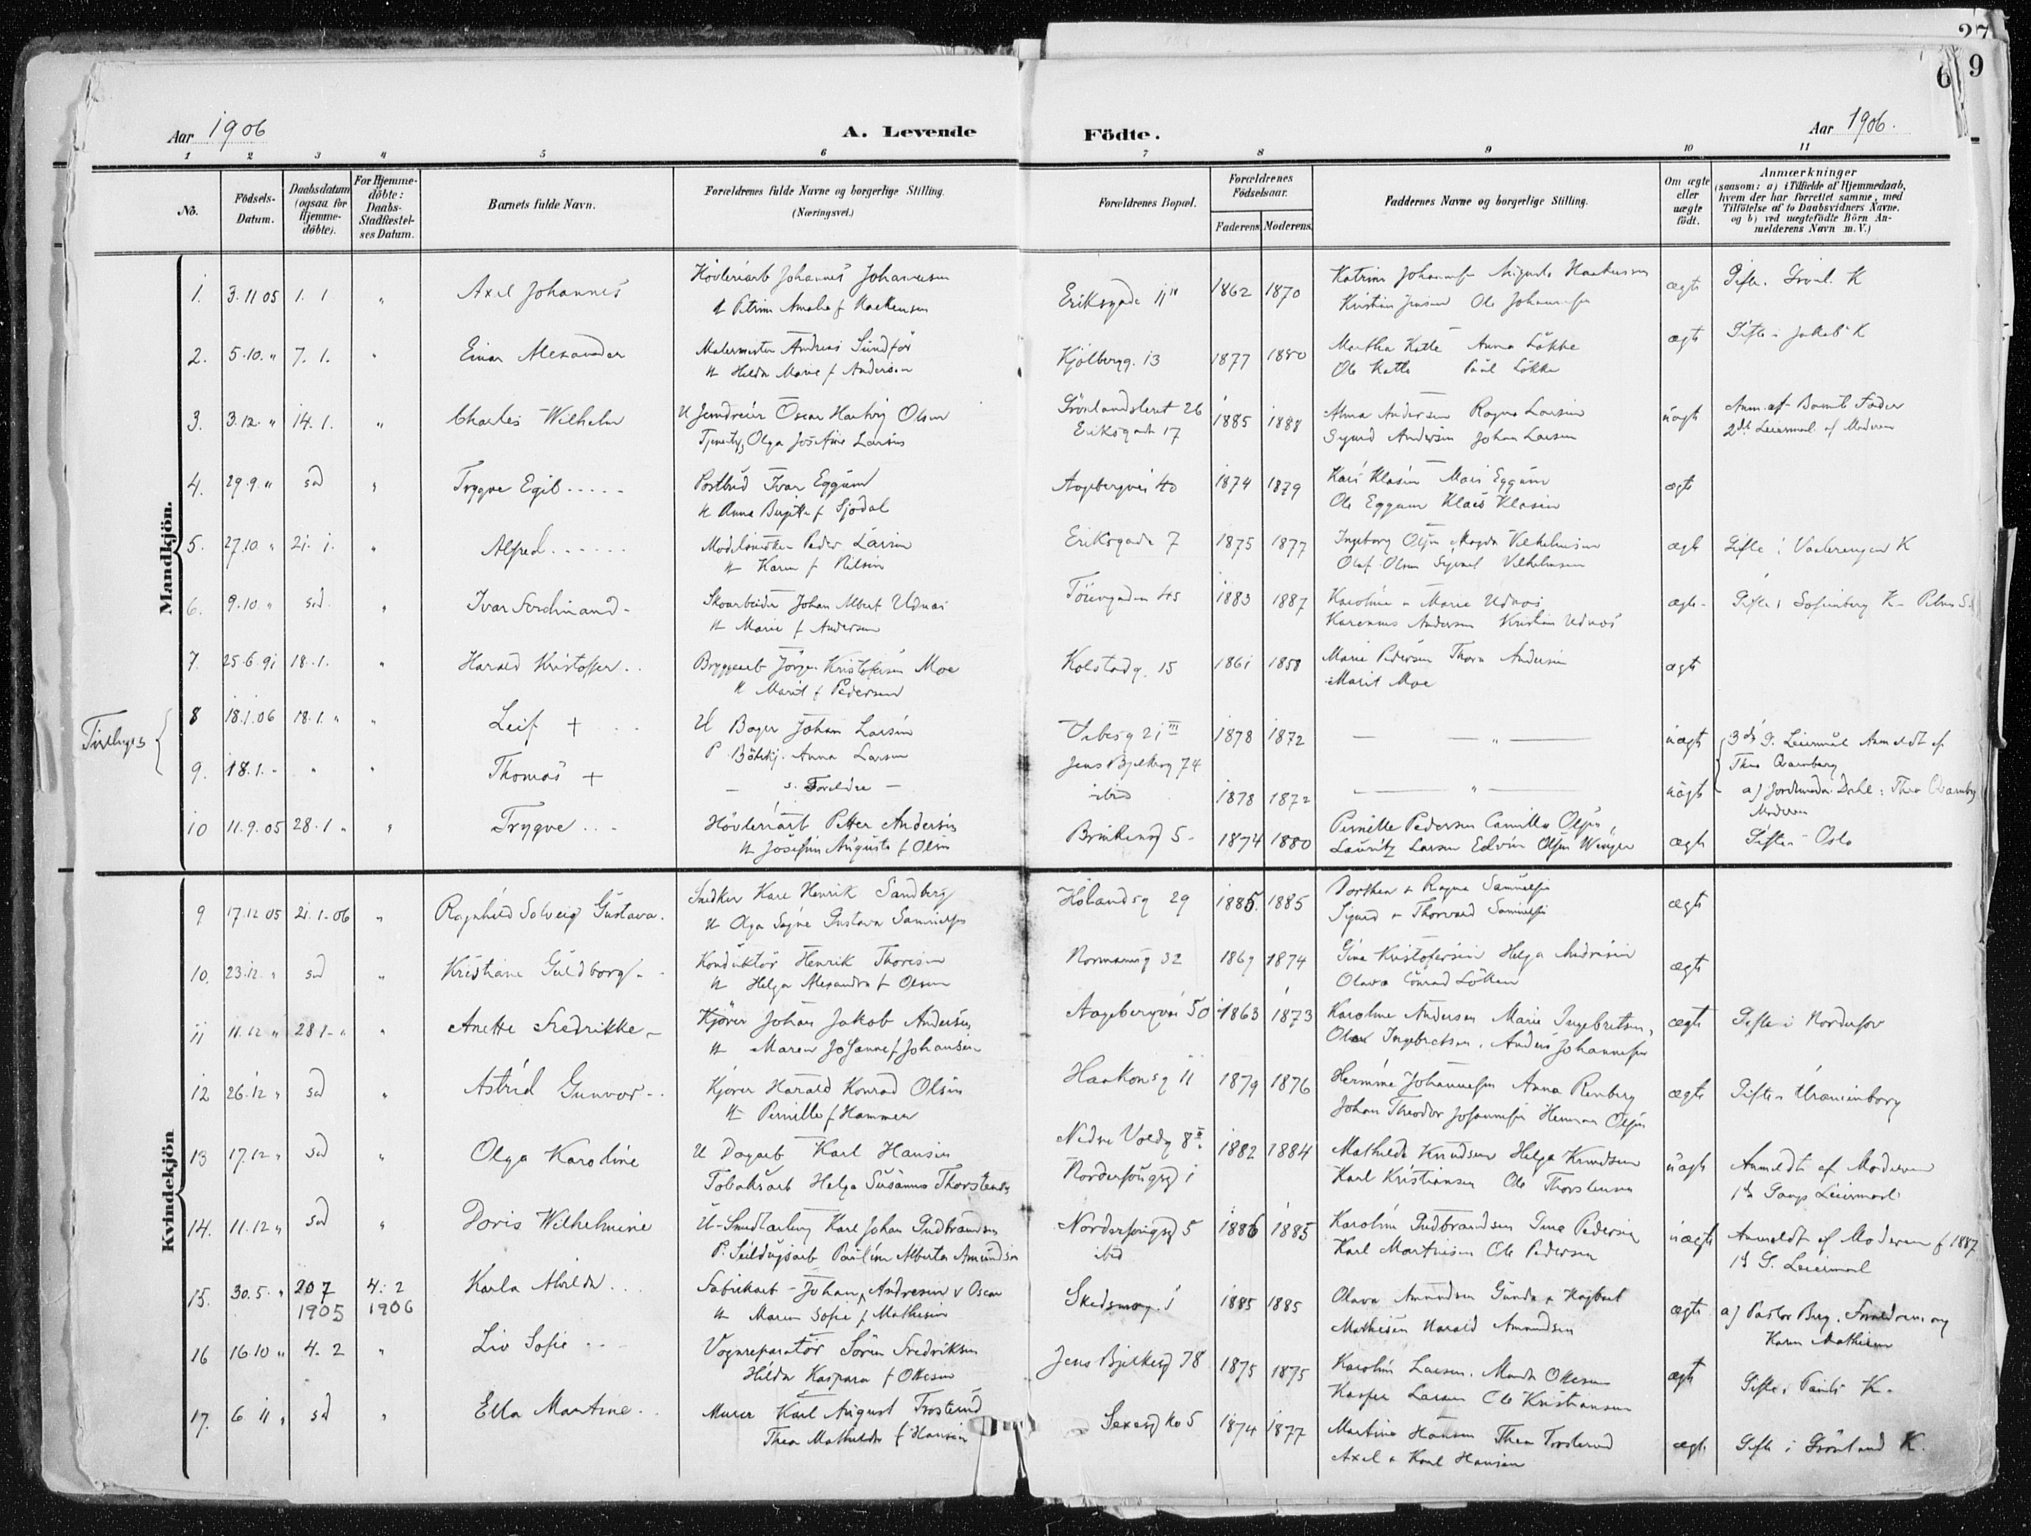 27
6 9
Aar 1906
A. Levende Födte.
Aar 1906.
1 2 3 4 5 6 7 8 9 10 11
No.
Födsels-Datum.
Daabsdatum (ogsaa for Hjemme-döbte).
For Hjemme-döbte: Daabs-Stadfæstel-ses Datum.
Barnets fulde Navn.
Forældrenes fulde Navne og borgerlige Stilling. (Næringsvei.)
Forældrenes Bopæl.
Forældrenes Födselsaar.
Faderens. Moderens.
Faddernes Navne og borgerlige Stilling.
Om ægte eller uægte födt.
Anmærkninger
(saasom: a) i Tilfælde af Hjemmedaab, hvem der har forrettet samme, med Tilföielse af to Daabsvidners Navne, og b) ved uægtefödte Börn An-melderens Navn m. V.)
Mandkjön.
1. 3.11 05 1. 1 " Axel Johannes Hövleriarb Johannes Johannesen Eriksgade 11 1862 1870 Katrine Johannesen Augusta Haakensen ægte Gifte. Grönl. K
H Petrine Amalie f Haakensen Kristian Jensen Ole Johannesen
2. 5.10. " 7. 1. " Einar Alexander Malermester Andreas Sundför Kjölbergg. 13 1877 1880 Martha Katte Anna Lökke ægte Gifte i Jakob K
H Hilda Marie f Andersen Ole Katte Paul Lökke
3. 3.12. " 14. 1. " Charles Wilhelm U Jerndreier Oscar Hartvig Olsen Grönlandsleret 26 1885 1888 Alma Andersen Ragna Larsen uægte Anm. af Barnets Fader
Tjenestep. Olga Josefine Larsen Eriksgade 17 Sigurd Andersen Johan Larsen 2det Leiermaal af Moderen
4. 29.9. " sd " Trygve Egil Postbud Ivar Eggum Aagebergvei 40 1874 1879 Klasen Eggum ægte
H Anna Birgitte f Sjödal Ole Eggum Klaus Klasen
5. 27.10 " 21. 1. " Alfred Modelsnekker Peder Larsen Eriksgade 7 1875 1877 Ingeborg Olsen Magda Vilhelmsen ægte Gifte i Vaalerengen K
H Karen f Nilsen Olaf Olsen Sigurd Vilhelmsen
6. 9.10 " sd " Ivar Ferdinand Skoarbeider Johan Albert Udnæs Töiengaden 45 1883 1887 Karoline & Marie Udnæs ægte Gifte i Sofienberg K
H Marie f Andersen Andersen Kristian Udnæs
7. 25.6 91 18.1. " Harald Kristoffer Bryggearb Jörgen Kristofersen Moe Kolstadg. 15 1861 1858 Marie Pedersen Thora Andersen ægte
H Marit f Pedersen Marit Moe
Tvillinger
8 18.1.06 18.1. " " Leif + U Bager Johan Larsen Vibesg 21 III 1878 1872 — " — uægte 3die G. Leiermaal Anmeldt af
P Anna Larsen Jens Bjelkesg 74 Thea Qvarnberg
9. 18.1. " " " Thomas + — s. Foreldre — ibid 1878 1872 — " — uægte a) Jordmoder Dahl: Thea Qvarnberg
Moderen
10 11.9.05 28.1 " " Trygve Hövleriarb Petter Andersen Brinkensg 5 1874 1880 Pernille Pedersen Camilla Olsen ægte Gifte i Oslo
H Josefine Augusta f Olsen Lauritz Larsen Edvin Olsen
Kvindekjön
9 17.12 05 21.1-06 " Ragnhild Solveig Gustava Snedker Karl Henrik Sandberg Hölandsg 29 1885. 1885 Dorthea & Ragna Samuelsen ægte
H Olga Signe Gustava Samuelsen Sigurd & Thorvald Samuelsen
10. 23.12. " sd " Kristiane Guldborg Konduktör Henrik Thoresen Normansg 32 1869 1874 Gina Kristofersen Helga Andresen ægte
H Helga Alexandra f Olsen Olava Conrad Lökken
11 11.12 " 28.1- " " Anette Fredrikke Kjörer Johan Jakob Andersen Aagebergvei 50 1863 1873 Karoline Andersen Marie Ingebretsen, ægte Gifte i Nordefor
H Maren Johanne f Johansen Ingebretsen. Anders Johannesen
12 26.12 " sd " Astrid Gunvor Kjörer Harald Konrad Olsen Haakonsg 11 1879 1876 Hermine Johannesen Anna Renberg ægte Gifte i Uranienborg
H Pernille f Hammer Johan Theodor Johannesen Herman Olsen
13 17.12 " sd " Olga Karoline U Dagarb Karl Hansen Nedre Voldg 8 II 1882 1884 Mathilde Knudsen Helga Knudsen uægte Anmeldt af Moderen
Tobaksarb Helga Susanna Thorstensen Nordorfsensg 1 Karl Kristiansen Ole Thorstensen 1ste Gangs Leiermaal
14. 11.12 " sd " Doris Wilhelmine U-Smedlærling Karl Johan Gudbrandsen 5 1886 1885 Karoline Gudbrandsen Gina Pedersen uægte Anmeldt af Moderen f 1887
P. Seildugsarb Pauline Alberta Amundsen ibid Karl Martinsen Ole Pedersen 1ste G. Leiermaal
15. 30.5. " 20 7 1905 4. 2 1906 Karla Alvilda Fabrikarb Johan Andresen v Oscar Skedsmog. 1 1885 1885 Olava Amundsen Gunda & Hagbart ægte a) Pastor Berg. Foreldrene og
H Maren Sofie f Mathisen Mathisen Harald Amundsen Karen Mathisen
16 16.10 " 4. 2 " Liv Sofie Vognreparatör Sören Fredriksen Jens Bjelkesg 78 1875 1875 Karoline Larsen. Marda Ottesen ægte Gifte i Pauls K.
Hilda Kaspara f Ottesen Kasper Larsen Ole Kristiansen
17. 6 11 " sd " Ella Martine Murer Karl August Trosterud Sexesg 5 1874 1877 Martine Hansen Thea Trosterud ægte Gifte i Grönland K.
Thea Mathilde f Hansen Axel & Karl Hansen